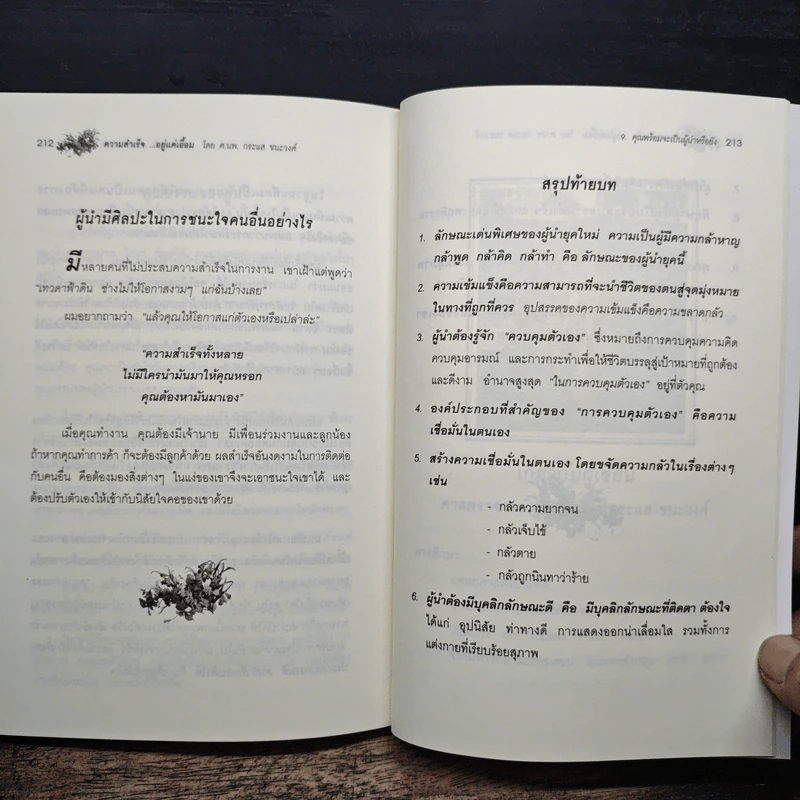 212 ความสำเร็จ ...อยู่แค่เอื้อม โดย ศ.นพ. กระแส ชนะวงศ์
ผู้นำมีศิลปะในการชนะใจคนอื่นอย่างไร
มีหลายคนที่ไม่ประสบความสำเร็จในการงาน เขาเฝ้าแต่พูดว่า
"เทวดาฟ้าดิน ช่างไม่ให้โอกาสงามๆ แก่ฉันบ้างเลย"
ผมอยากถามว่า "แล้วคุณให้โอกาสแก่ตัวเองหรือเปล่าล่ะ"
"ความสำเร็จทั้งหลาย
ไม่มีใครนำมันมาให้คุณหรอก
คุณต้องหามันมาเอง"
เมื่อคุณทำงาน คุณต้องมีเจ้านาย มีเพื่อนร่วมงานและลูกน้อง
ถ้าหากคุณทำการค้า ก็จะต้องมีลูกค้าด้วย ผลสำเร็จอันงดงามในการติดต่อ
กับคนอื่น คือต้องมองสิ่งต่างๆ ในแง่ของเขาจึงจะเอาชนะใจเขาได้ และ
ต้องปรับตัวเองให้เข้ากับนิสัยใจคอของเขาด้วย
9. คุณพร้อมจะเป็นผู้นำหรือยัง 213
สรุปท้ายบท
1. ลักษณะเด่นพิเศษของผู้นำยุคใหม่ ความเป็นผู้มีความกล้าหาญ
กล้าพูด กล้าคิด กล้าทำ คือ ลักษณะของผู้นำยุคนี้
2. ความเข้มแข็งคือความสามารถที่จะนำชีวิตของตนสู่จุดมุ่งหมาย
ในทางที่ถูกที่ควร อุปสรรคของความเข้มแข็งคือความขลาดกลัว
3. ผู้นำต้องรู้จัก "ควบคุมตัวเอง" ซึ่งหมายถึงการควบคุมความคิด
ควบคุมอารมณ์ และการกระทำเพื่อให้ชีวิตบรรลุสู่เป้าหมายที่ถูกต้อง
และดีงาม อำนาจสูงสุด "ในการควบคุมตัวเอง" อยู่ที่ตัวคุณ
4. องค์ประกอบที่สำคัญของ "การควบคุมตัวเอง" คือความ
เชื่อมั่นในตนเอง
5. สร้างความเชื่อมั่นในตนเอง โดยขจัดความกลัวในเรื่องต่างๆ
เช่น
- กลัวความยากจน
- กลัวเจ็บไข้
- กลัวตาย
- กลัวถูกนินทาว่าร้าย
6. ผู้นำต้องมีบุคลิกลักษณะดี คือ มีบุคลิกลักษณะที่ติดตา ต้องใจ
ได้แก่ อุปนิสัย ท่าทางดี การแสดงออกน่าเลื่อมใส รวมทั้งการ
แต่งกายที่เรียบร้อยสุภาพ